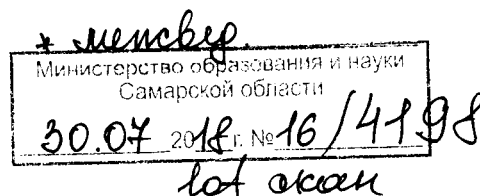 * межвед.
Министерство образования и науки
Самарской области
30.07 2018 г. № 16/4198
скан